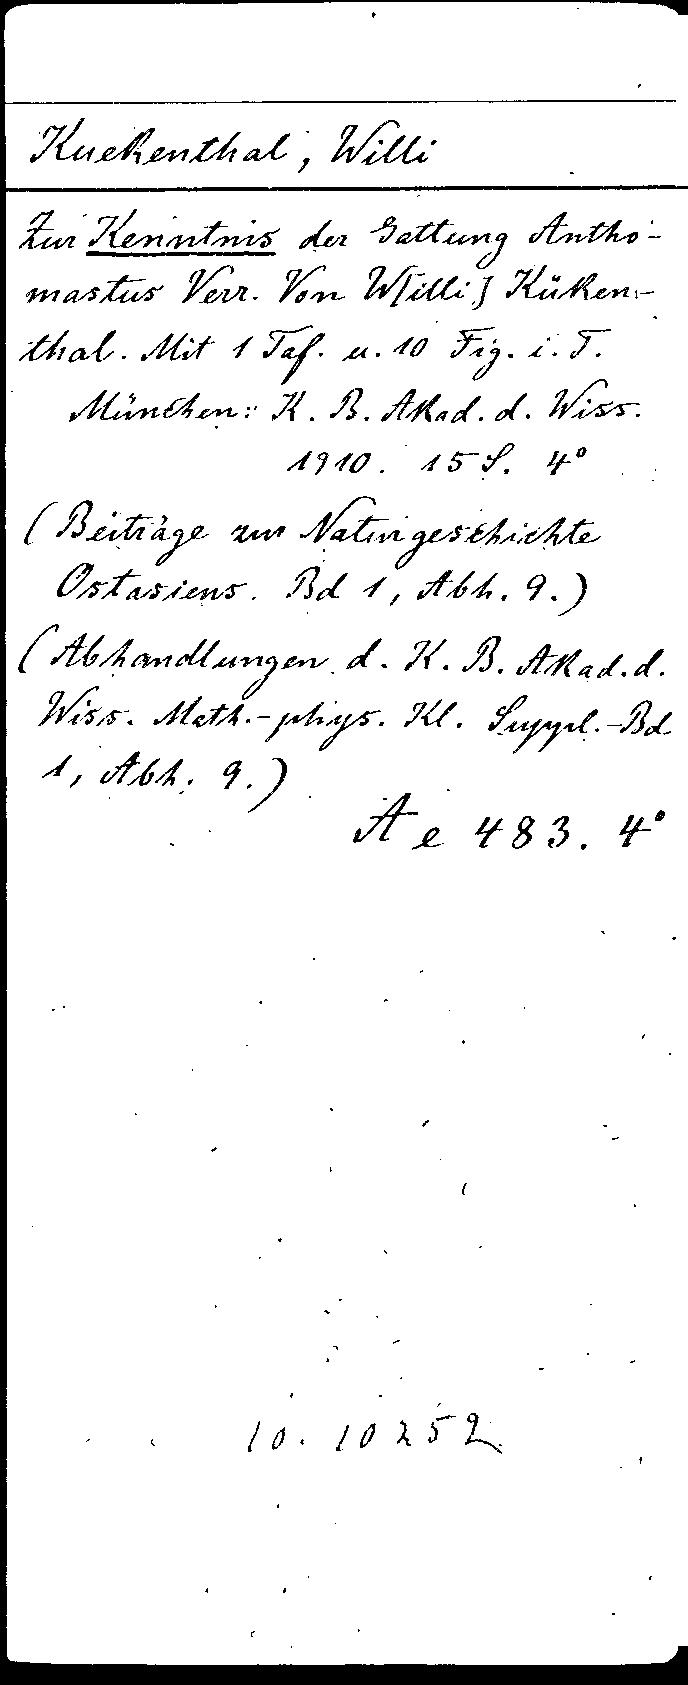 Kuekenthal, Willi
Zur Kenntnis der Gattung Antho-
mastus Verr. Von W[illi] Küken-
thal. Mit 1 Taf. u. 10 Fig. i. T.
München: K. B. Akad. d. Wiss.
1910. 15 S. 4°
(Beiträge zur Naturgeschichte
Ostasiens. Bd 1, Abh. 9.)
(Abhandlungen d. K. B. Akad. d.
Wiss. Math.-phys. Kl. Suppl.-Bd
1, Abh. 9.)
Ae 483. 4°
10. 10252